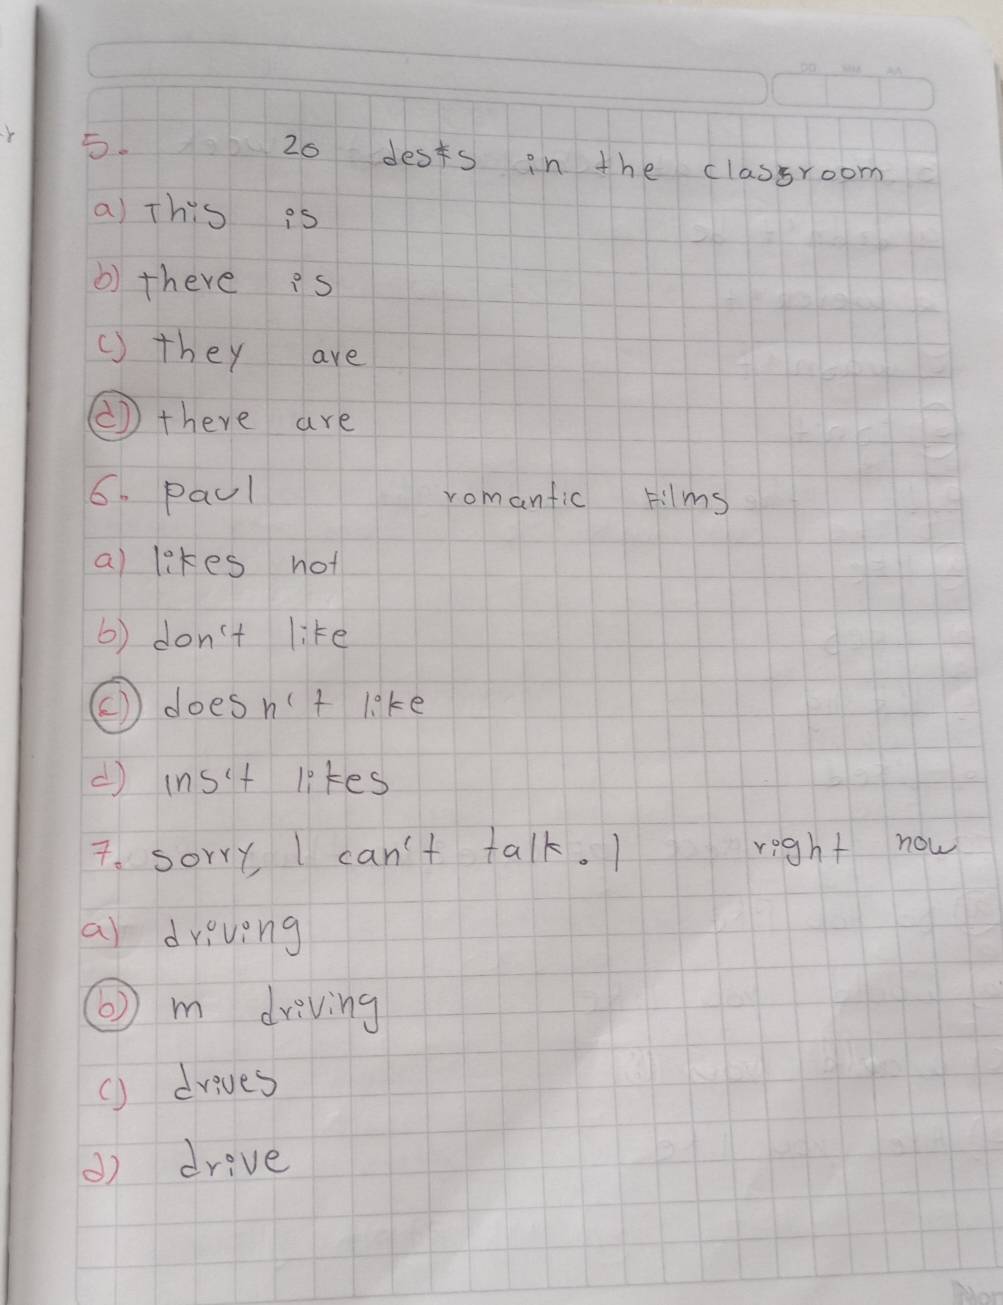 5. 20 desks in the classroom
a) This is
b) there is
c) they are
d) there are
6. paul romantic films
a) likes not
b) don't like
c) doesn't like
d) ins't likes
7. sorry, I can't talk. I right now
a) driving
b) m driving
c) drives
d) drive